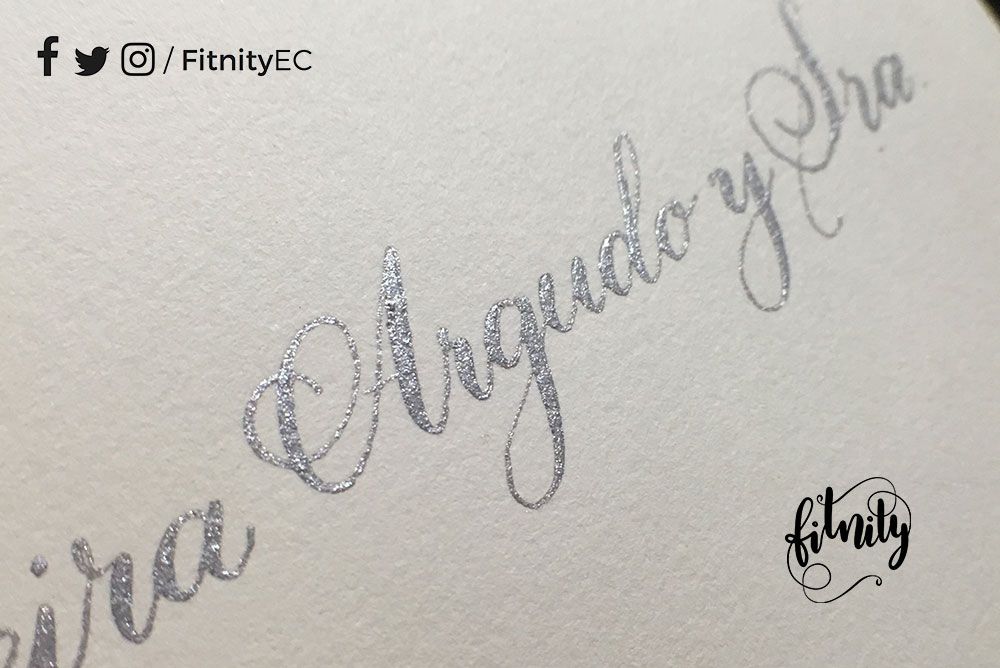 / FitnityEC
ira Argudo y Sra
fitnity